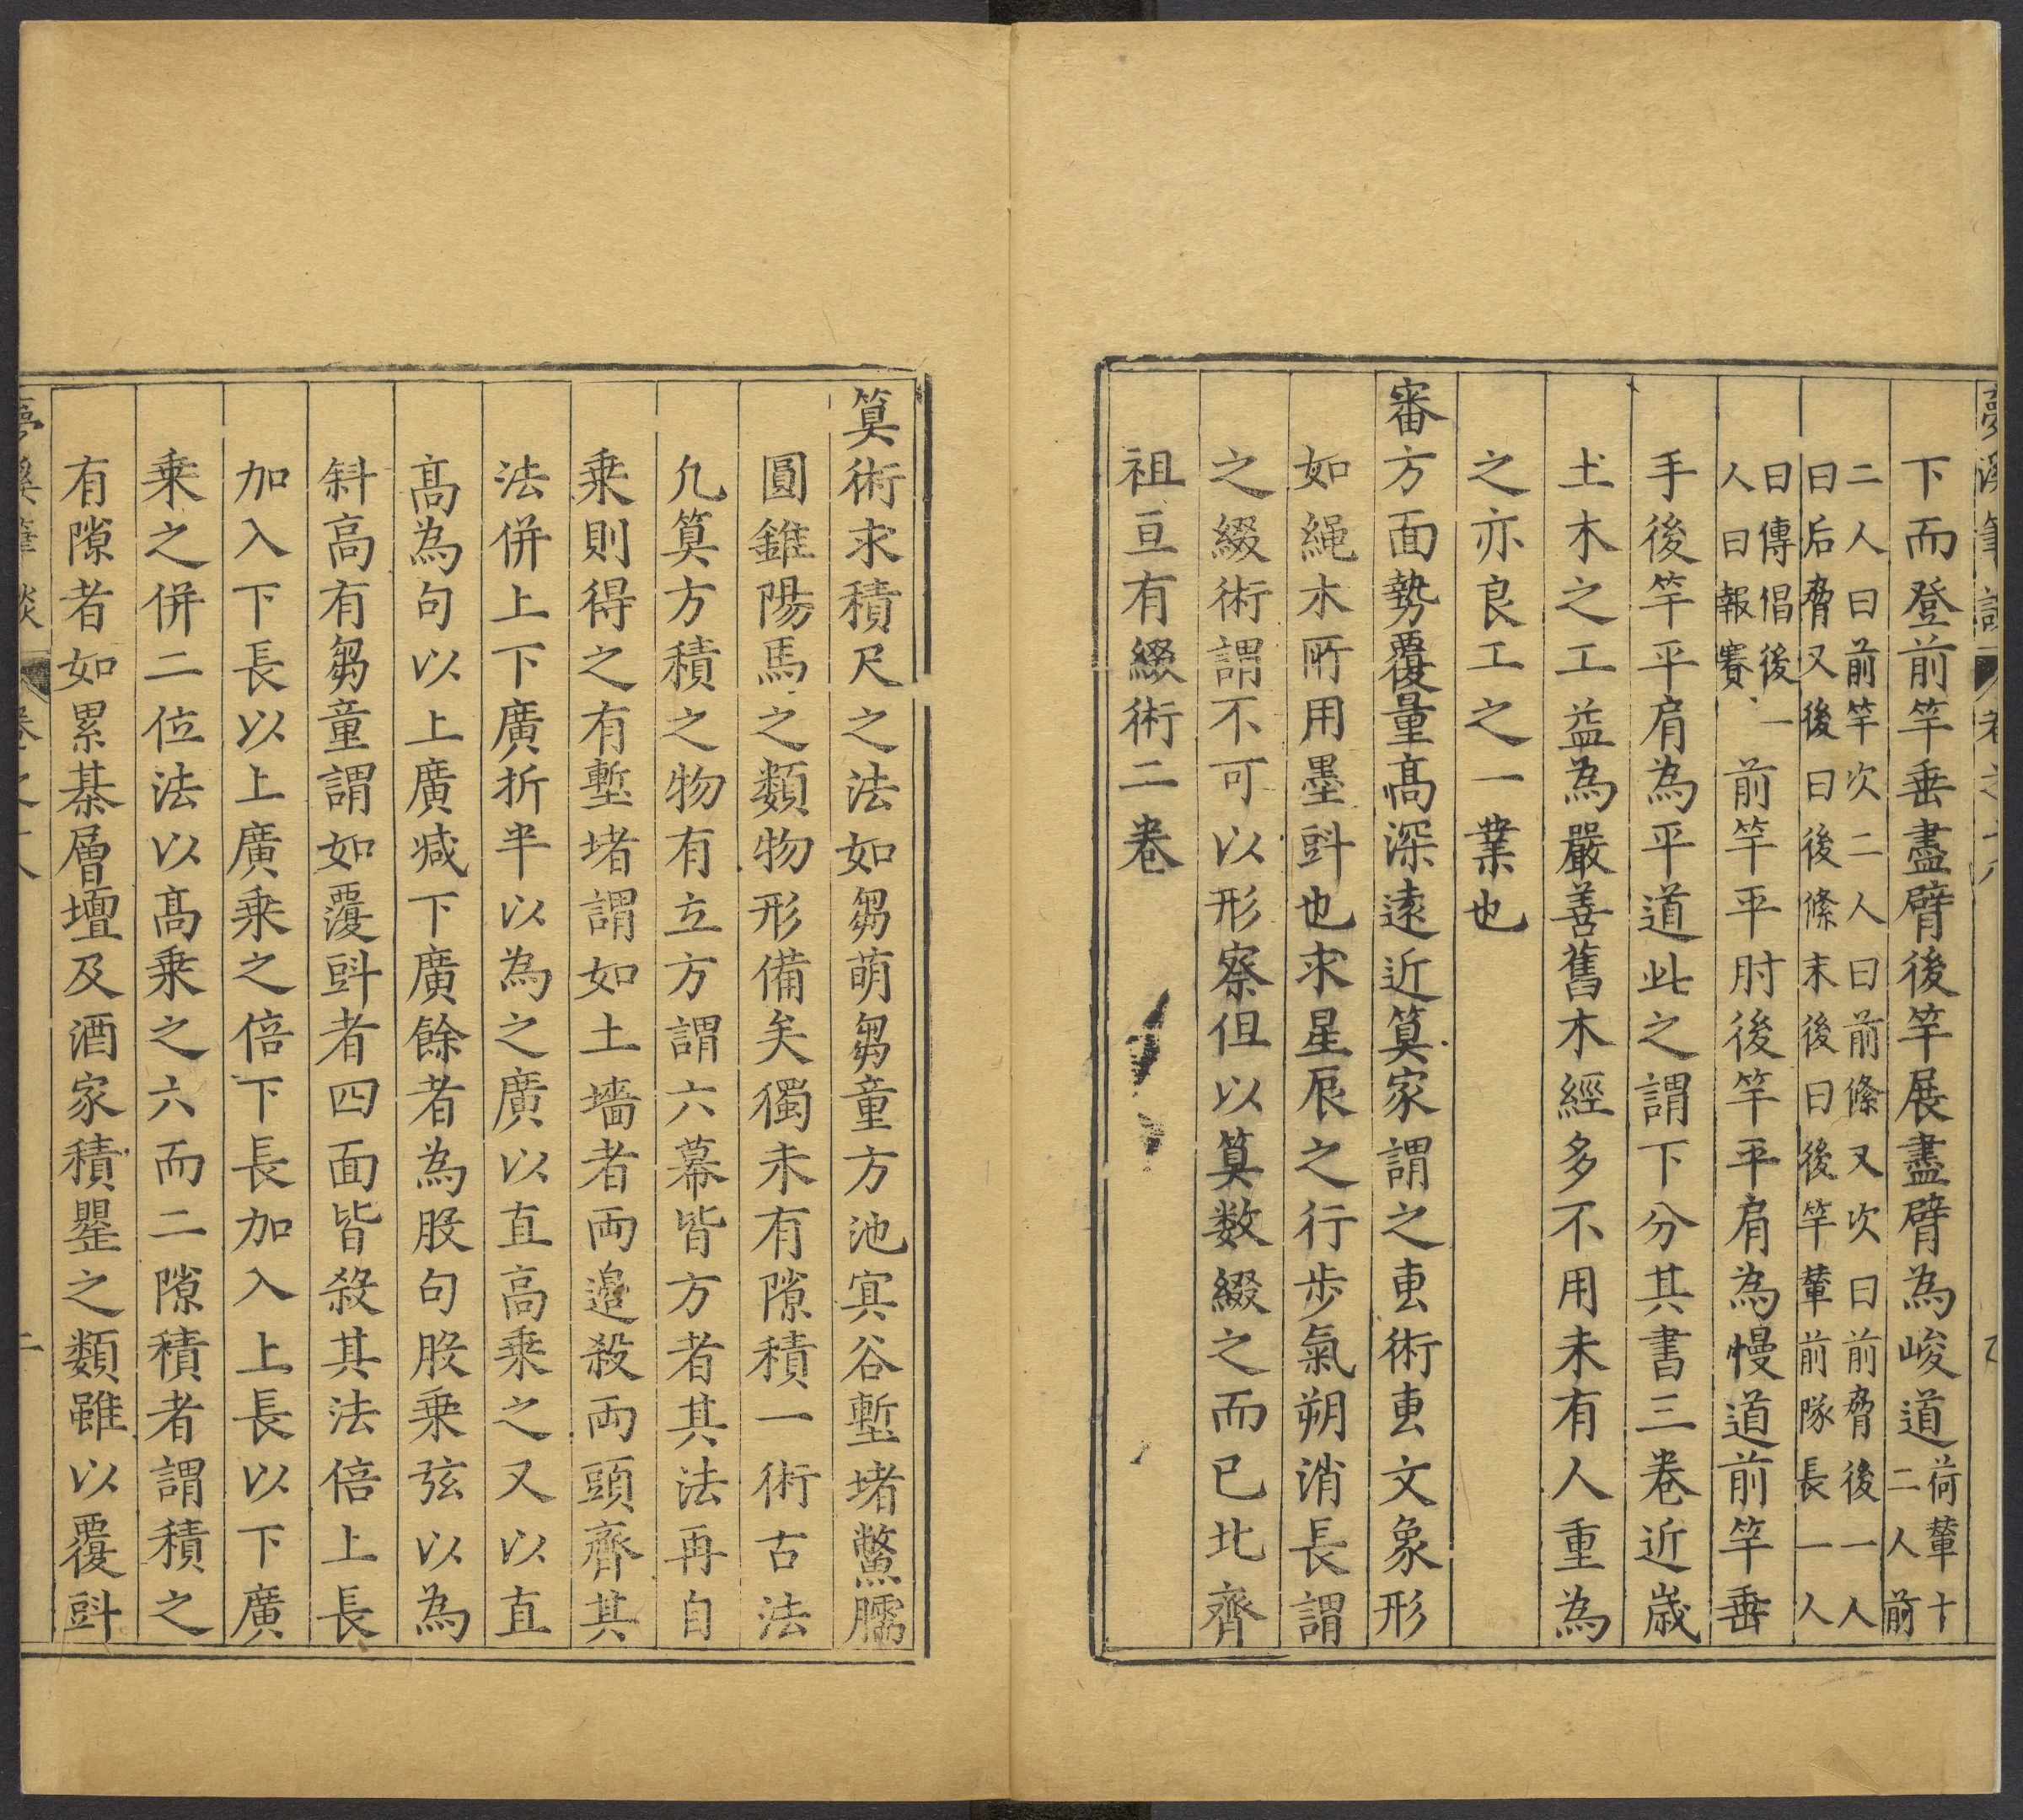 下而登前竿垂盡臂後竿展盡臂為峻道荷輦十
二人前
二人曰前竿次二人曰前絛又次曰前脅後一人
曰后脅又後曰後絛末後曰後竿輦前隊長一人
曰傳倡後一
人曰報賽
前竿平肘後竿平肩為慢道前竿垂
手後竿平肩為平道此之謂下分其書三卷近歲
土木之工益為嚴善舊木經多不用未有人重為
之亦良工之一業也
審方面勢覆量髙深遠近算家謂之叀術叀文象形
如繩木所用墨㪷也求星辰之行步氣朔消長謂
之綴術謂不可以形察但以算数綴之而已北齊
祖亘有綴術二卷
算術求積尺之法如芻萌芻童方池冥谷塹堵鱉臑
圓錐陽馬之類物形備矣獨未有隙積一術古法
凢算方積之物有立方謂六幕皆方者其法再自
乗則得之有塹堵謂如土墻者兩邉殺兩頭齊其
法併上下廣折半以為之廣以直高乗之又以直
髙為句以上廣减下廣餘者為股句股乗弦以為
斜高有芻童謂如覆㪷者四面皆殺其法倍上長
加入下長以上廣乗之倍下長加入上長以下廣
乗之併二位法以髙乗之六而二隙積者謂積之
有隙者如累棊層壇及酒家積罌之類雖以覆㪷